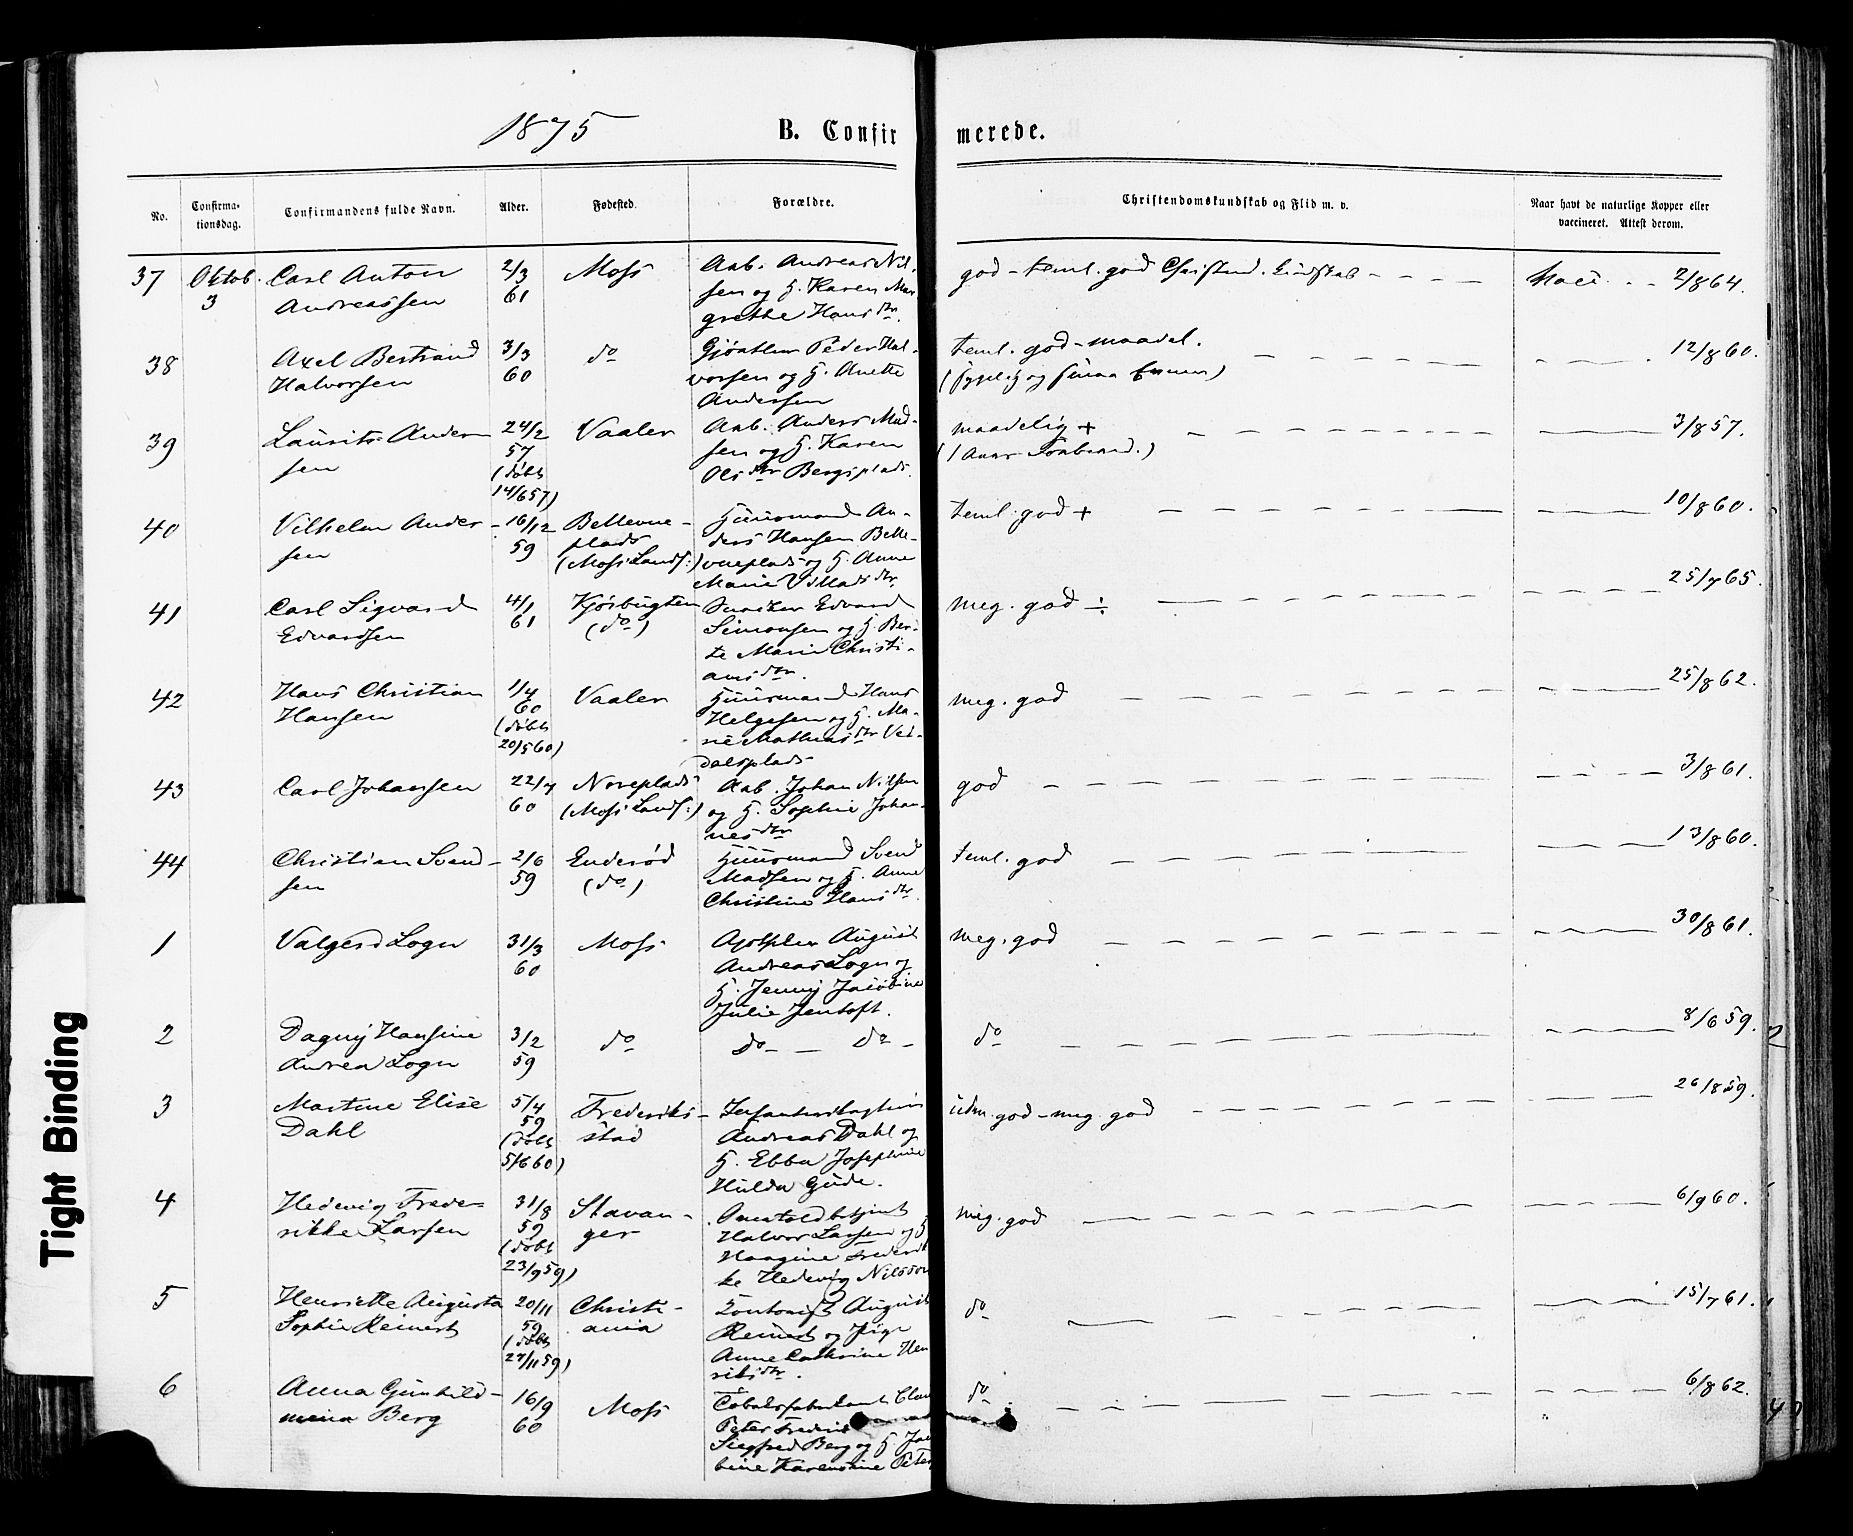 1875
B. Confirmerede.
No.
Confirmationsdag.
Confirmandens fulde Navn.
Alder.
Fødested.
Forældre.
Christendomskundskab og Flid m. v.
Naar havt de naturlige Kopper eller
vaccineret. Attest derom.
37 Oktob. 3 Carl Anton Andreassen 2/3 61 Moss
Aab. Andreas Nil-
sen og H. Karen Mar
grethe Hans dtr.
god - teml. god Christend. Kundskab 2/8 64.
38 Axel Bertrand Halvorsen 3/3 60 do
Peder Hal-
vorsen og H. Anette
Andersen
teml. god - maadel. 12/8 60.
39 Laurits Andersen 24/2 57 (døbt 14/6 57) Vaaler
Aab. Anders Mad-
sen og H. Karen
Ols dtr Bergsplads.
maadelig + 3/8 57.
40 Vilhelm Andersen 16/12 59 Bellevueplads (Moss Lands:)
Huusmand An-
ders Hansen Belle-
vueplads og H. Anne
Marie Mads dtr.
teml. god + 10/8 60.
41 Carl Sigvard Edvardsen 4/1 61 Kjøsbugten (do)
Snedker Edvard
Simonsen og H. Beri-
te Marie Christi-
ans dtr.
meg. god ÷ 25/7 65.
42 Hans Christian Hansen 1/4 60 (døbt 20/5 60) Vaaler
Huusmand Hans
Helgesen og H. Ma-
rie Mathias dtr Ve-
dalsplads
meg. god 25/8 62.
43 Carl Johansen 22/7 60 Noreplads (Moss Lands:)
Aab. Johan Nilsen
og H. Sophie Johan-
nes dtr
god 3/8 61.
44 Christian Svendsen 2/6 59 Enderød (do)
Huusmand Svend
Madsen og H. Anne
Christine Hans dtr.
teml. god 13/8 60.
1 Valgerd Logn 31/3 60 Moss
August
Andreas Logn og
H. Jenny Jacobine
Julie Jentoft.
meg. god 30/8 61.
2 Dagny Hansine Andrea Logn 3/2 59 do
do - - do -
do 8/6 59.
3 Martine Elise Dahl 5/4 59 (døbt 5/6 60) Frederiksstad
Andreas Dahl og
H. Ebba Josephine
Hulda Gude.
udm. god - meg. god 26/8 59.
4 Hedevig Frederikke Larsen 31/8 59 (døbt 23/9 59) Stavanger
Halvor Larsen og H
Haagine Frederik
ke Hedevig Nilsson
meg. god 6/9 60.
5 Henriette Augusta Sophie Reinert 20/11 59 (døbt 27/11 59) Christiania
Kontorist August
Reinert og Pige
Anne Cathrine Hen
riks dtr.
do 15/7 61.
6 Anna Gunhildmina Berg 16/9 60 Moss
Tobaksfabrikant Claus
Peter Frederik
Siegfred Berg og H. Jac
bine Karensine Peter
do 6/8 62.
Tight Binding